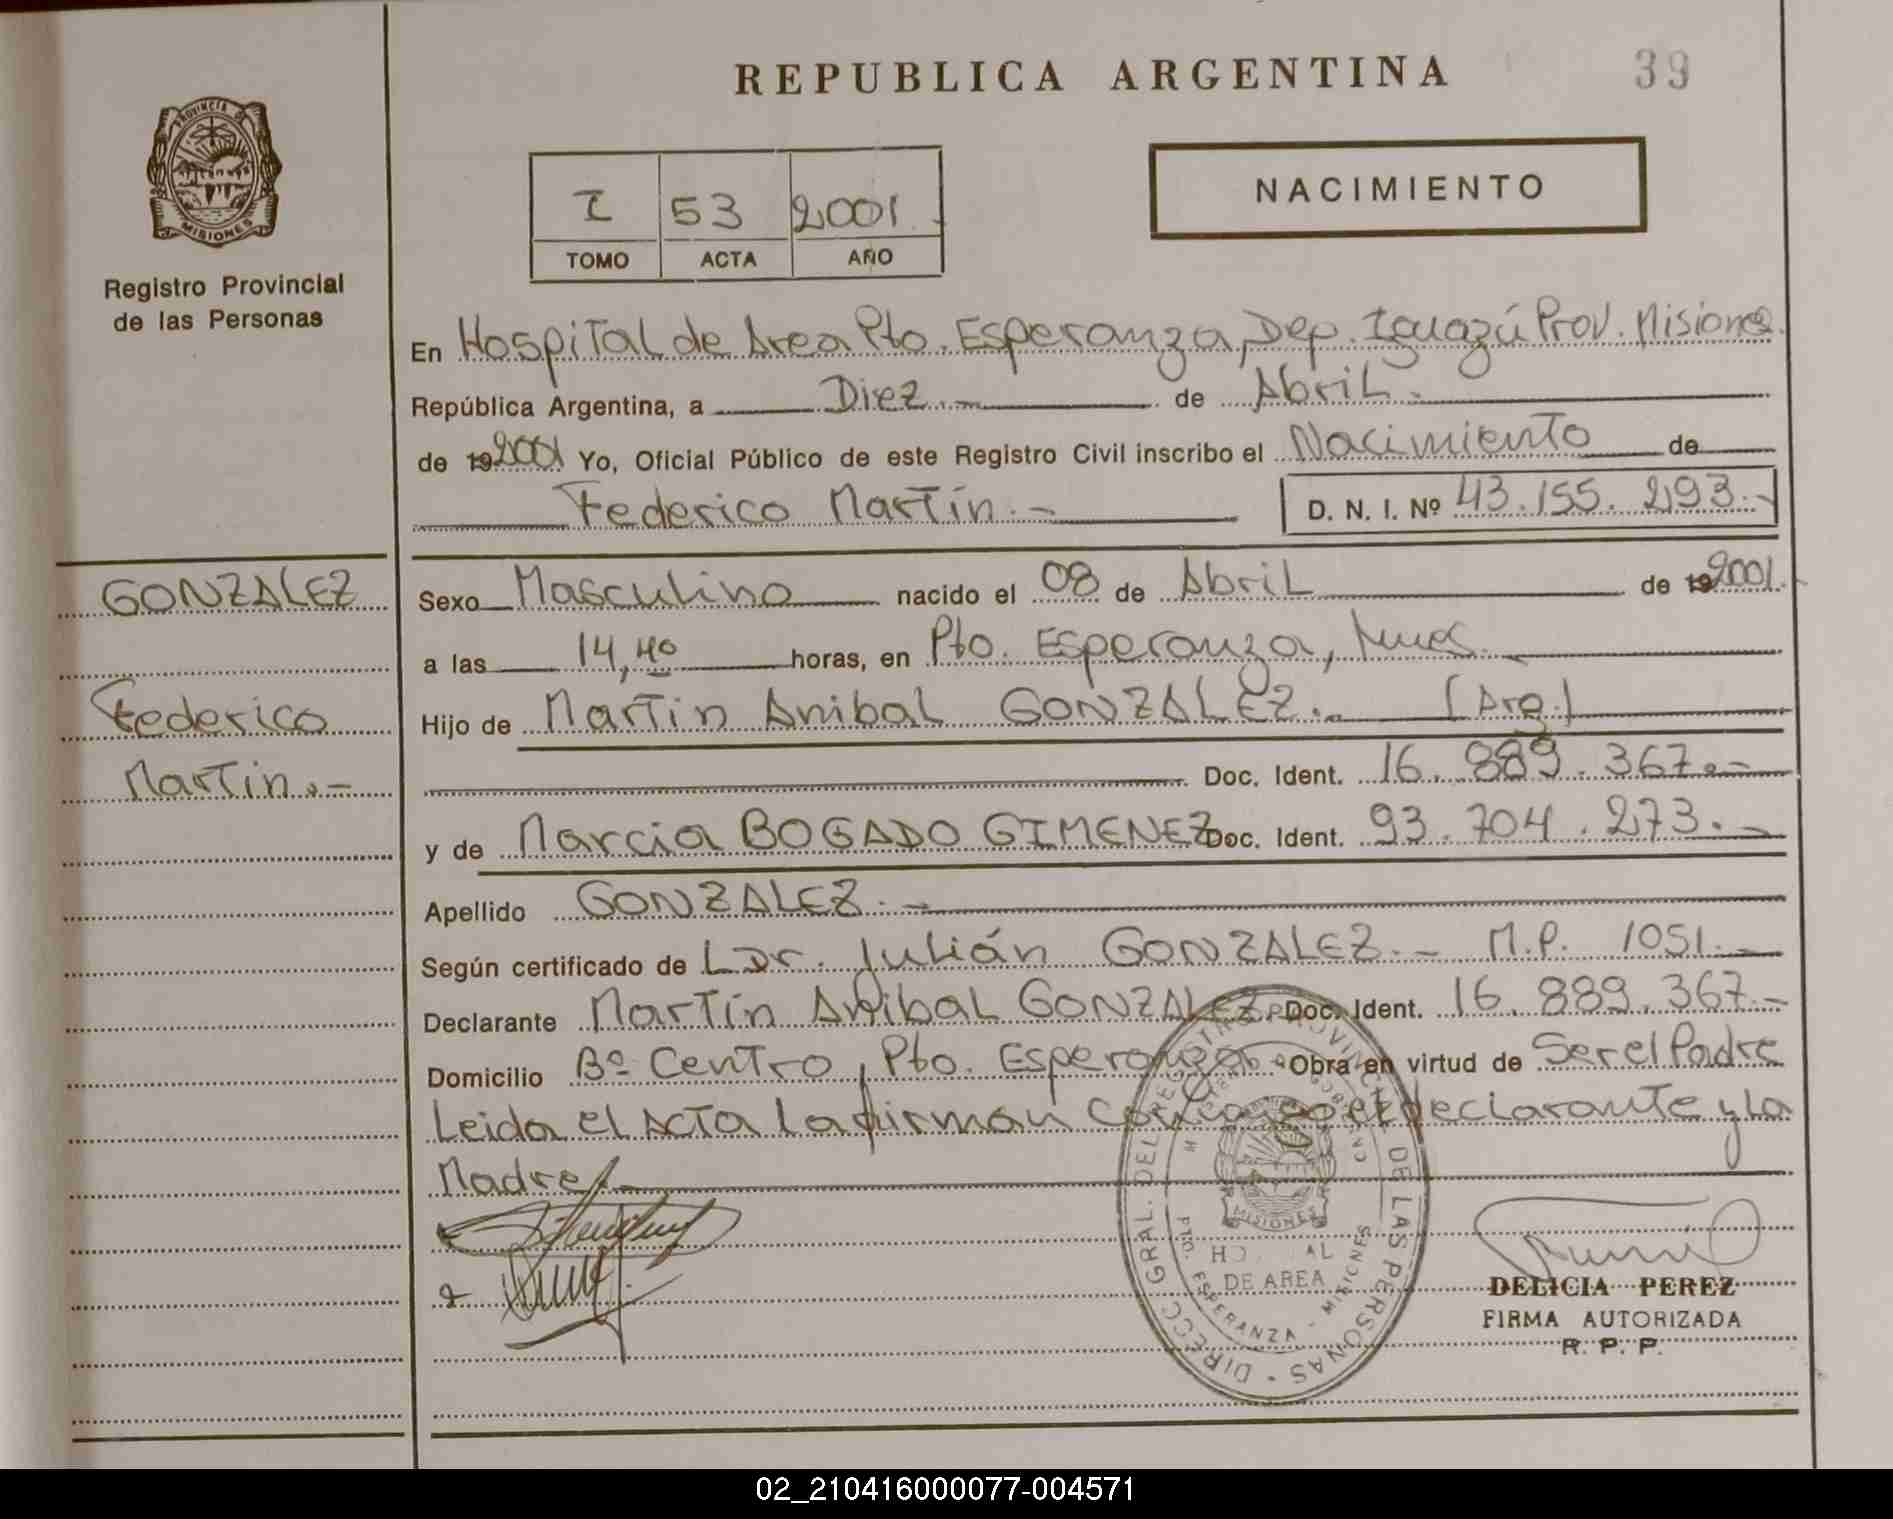 REPUBLICA ARGENTINA
39
PROVINCIA DE
MISIONES
Registro Provincial
de las Personas
I 53 2001
TOMO ACTA AÑO
NACIMIENTO
En Hospital de Area Pto. Esperanza, Dep. Iguazú Prov. Misiones.
República Argentina, a Diez.- de Abril.
de 19 2001 Yo, Oficial Público de este Registro Civil inscribo el Nacimiento de
Federico Martín.-
D. N. I. Nº 43.155.293.-
GONZALEZ
Federico
Martin.-
Sexo Masculino nacido el 08 de Abril de 19 2001.
a las 14,40 horas, en Pto. Esperanza, Mnes.
Hijo de Martin Anibal GONZALEZ.- (Arg.)
Doc. Ident. 16.889.367.-
y de Marcia BOGADO GIMENEZ Doc. Ident. 93.704.273.-
Apellido GONZALEZ.-
Según certificado de L Dr. Julián GONZALEZ.- M.P. 1051.-
Declarante Martín Anibal GONZALEZ. Doc. Ident. 16.889.367.-
Domicilio Bº Centro, Pto. Esperanza. Obra en virtud de Ser el Padre
Leida el Acta la firman conmigo el declarante y la
Madre.-
DIRECC. GRAL. DEL REGISTRO PROVINCIAL DE LAS PERSONAS
MISIONES
DE AREA
PTO. ESPERANZA - MISIONES
DELICIA PEREZ
FIRMA AUTORIZADA
R. P. P.
02_210416000077-004571